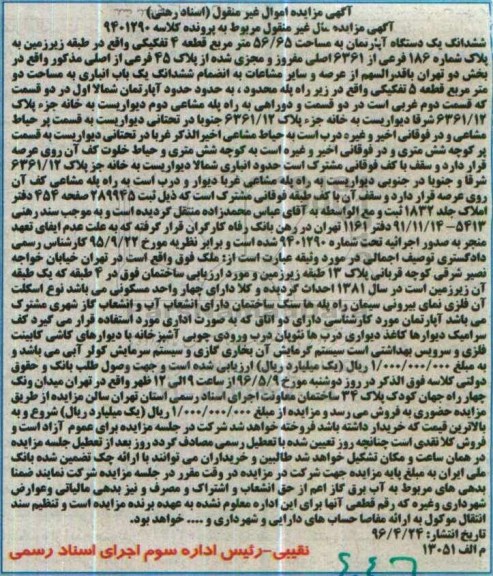 آگهی مزایده اموال غیر منقول (اسناد رهنی)
آگهی مزایده مال غیر منقول مربوط به پرونده کلاسه ۹۴۰۱۲۹۰
ششدانگ یک دستگاه آپارتمان به مساحت ۵۶/۶۵ متر مربع قطعه ۴ تفکیکی واقع در طبقه زیرزمین به
پلاک شماره ۱۸۶ فرعی از ۶۳۶۱ اصلی مفروز و مجزی شده از پلاک ۴۵ فرعی از اصلی مذکور واقع در
بخش دو تهران باقدرالسهم از عرصه و سایر مشاعات به انضمام ششدانگ یک باب انباری به مساحت دو
متر مربع قطعه ۵ تفکیکی واقع در زیر راه پله محدود ، به حدود حدود آپارتمان شمالا اول در دو قسمت
که قسمت دوم غربی است در دو قسمت و دوراهی به راه پله مشاعی دوم دیواریست به خانه جزء پلاک
۶۳۶۱/۱۲ شرقا دیواریست به خانه جزء پلاک ۶۳۶۱/۱۲ جنوبا در تحتانی دیواریست به قسمت پر حیاط
مشاعی و در فوقانی اخیر و غیره درب است به حیاط مشاعی اخیرالذکر غربا در تحتانی دیواریست به قسمت
پر کوچه شش متری و در فوقانی اخیر و غیره است به کوچه شش متری و حیاط خلوت کف آن روی عرصه
قرار دارد و سقف با کف فوقانی مشترک است حدود انباری شمالا دیواریست به خانه جز پلاک ۶۳۶۱/۱۲
شرقا و جنوبا در جنوبی دیواریست به راه پله مشاعی غربا دیوار و درب است به راه پله مشاعی کف آن
روی عرصه قرار دارد و سقف آن با کف طبقه فوقانی مشترک است که ذیل ثبت ۲۸۹۹۴۵ صفحه ۴۵۴ دفتر
املاک جلد ۱۸۳۲ ثبت و مع الواسطه به آقای عباس محمدزاده منتقل گردیده است و به موجب سند رهنی
۵۴۱۳-۹۱/۱۱/۱۴ دفتر ۱۱۶۱ تهران در رهن بانک رفاه کارگران قرار گرفته که به علت عدم ایفای تعهد
منجر به صدور اجرائیه تحت شماره ۹۴۰۱۲۹۰ شده است و برابر نظریه مورخ ۹۵/۹/۲۲ کارشناس رسمی
دادگستری توصیف اجمالی در مورد وثیقه عبارت است از: ملک فوق واقع است در تهران خیابان خواجه
نصیر شرقی کوچه قربانی پلاک ۱۳ طبقه زیرزمین و مورد ارزیابی ساختمان فوق در ۴ طبقه که یک طبقه
آن زیرزمین است در سال ۱۳۸۱ احداث گردیده و کلا دارای چهار واحد مسکونی می باشد نوع اسکلت
آن فلزی نمای بیرونی سیمان راه پله ها سنگ ساختمان دارای انشعاب آب و انشعاب گاز شهری مشترک
می باشد آپارتمان مورد کارشناسی دارای دو اتاق که به صورت اداری مورد استفاده قرار می گیرد کف
سرامیک دیوارها کاغذ دیواری درب ها نئوپان درب ورودی چوبی آشپزخانه با دیوارهای کاشی کابینت
فلزی و سرویس بهداشتی است سیستم گرمایش آن بخاری گازی و سیستم سرمایش کولر آبی می باشد و
به مبلغ ۱/۰۰۰/۰۰۰/۰۰۰ ریال (یک میلیارد ریال) ارزیابی شده است و جهت وصول طلب بانک و حقوق
دولتی کلاسه فوق الذکر در روز دوشنبه مورخ ۹۶/۵/۹ از ساعت ۹ الی ۱۲ ظهر واقع در تهران میدان ونک
چهار راه جهان کودک پلاک ۳۴ ساختمان معاونت اجرای اسناد رسمی استان تهران سالن مزایده از طریق
مزایده حضوری به فروش می رسد و مزایده از مبلغ ۱/۰۰۰/۰۰۰/۰۰۰ ریال (یک میلیارد ریال) شروع و به
بالاترین قیمت که خریدار داشته باشد فروخته خواهد شد شرکت در جلسه مزایده برای عموم آزاد است و
فروش کلا نقدی است چنانچه روز تعیین شده با تعطیل رسمی مصادف گردد روز بعد از تعطیل جلسه مزایده
در همان ساعت و مکان تشکیل خواهد شد طالبین و خریداران می توانند با ارائه چک تضمین شده بانک
ملی ایران به مبلغ پایه مزایده جهت شرکت در مزایده در وقت مقرر در جلسه مزایده شرکت نمایند ضمنا
بدهی های مربوط به آب برق گاز اعم از حق انشعاب و اشتراک و مصرف و نیز بدهی مالیاتی وعوارض
شهرداری وغیره که رقم قطعی آنها برای این اداره معلوم نشده به عهده برنده مزایده است و تنظیم سند
انتقال موکول به ارائه مفاصا حساب های دارایی و شهرداری و .... خواهد بود.
تاریخ انتشار: ۹۶/۴/۲۴
م الف ۱۳۰۵۱
نقیبی-رئیس اداره سوم اجرای اسناد رسمی